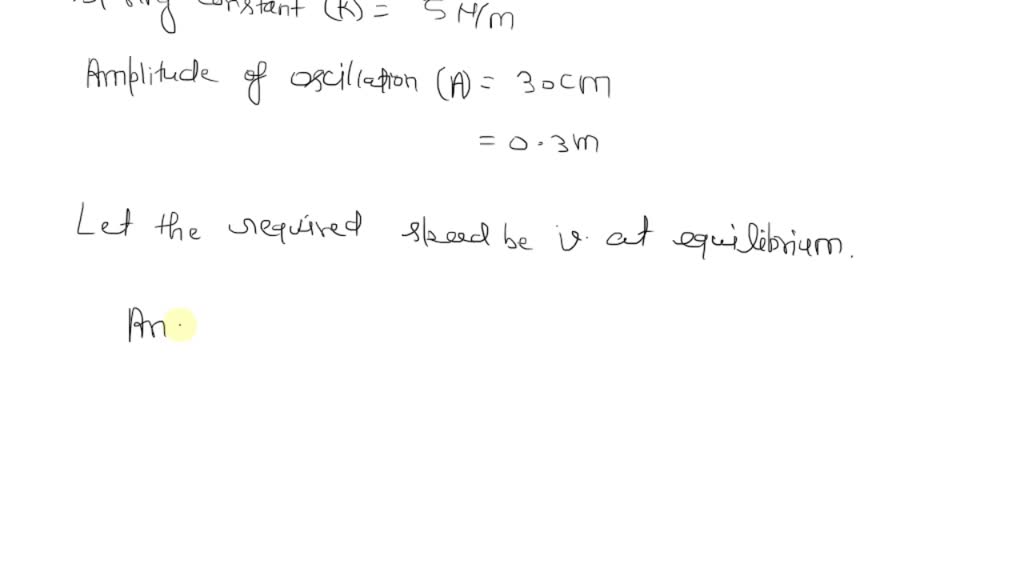 constant (K) = 5 N/m
Amplitude of oscillation (A) = 30cm
= 0.3m
Let the required speed be v. at equilibrium.
An